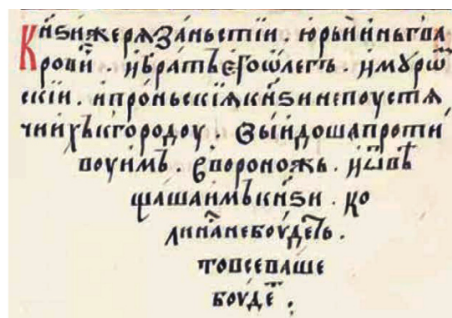 Кн҃ѕи же рѧзаньстїи . юрьи иньгва
рови ч . и братъ єго ѡлегъ . и мурѡ
скїи . и проньскїѧ кн҃ѕи не поустѧ
чи ихъ к городоу . выидоша проти
воу имъ . в вороножь . и ѿвѣ
щаша имъ кн҃ѕи . ко
ли на не боудеть .
то все ваше
боудет .